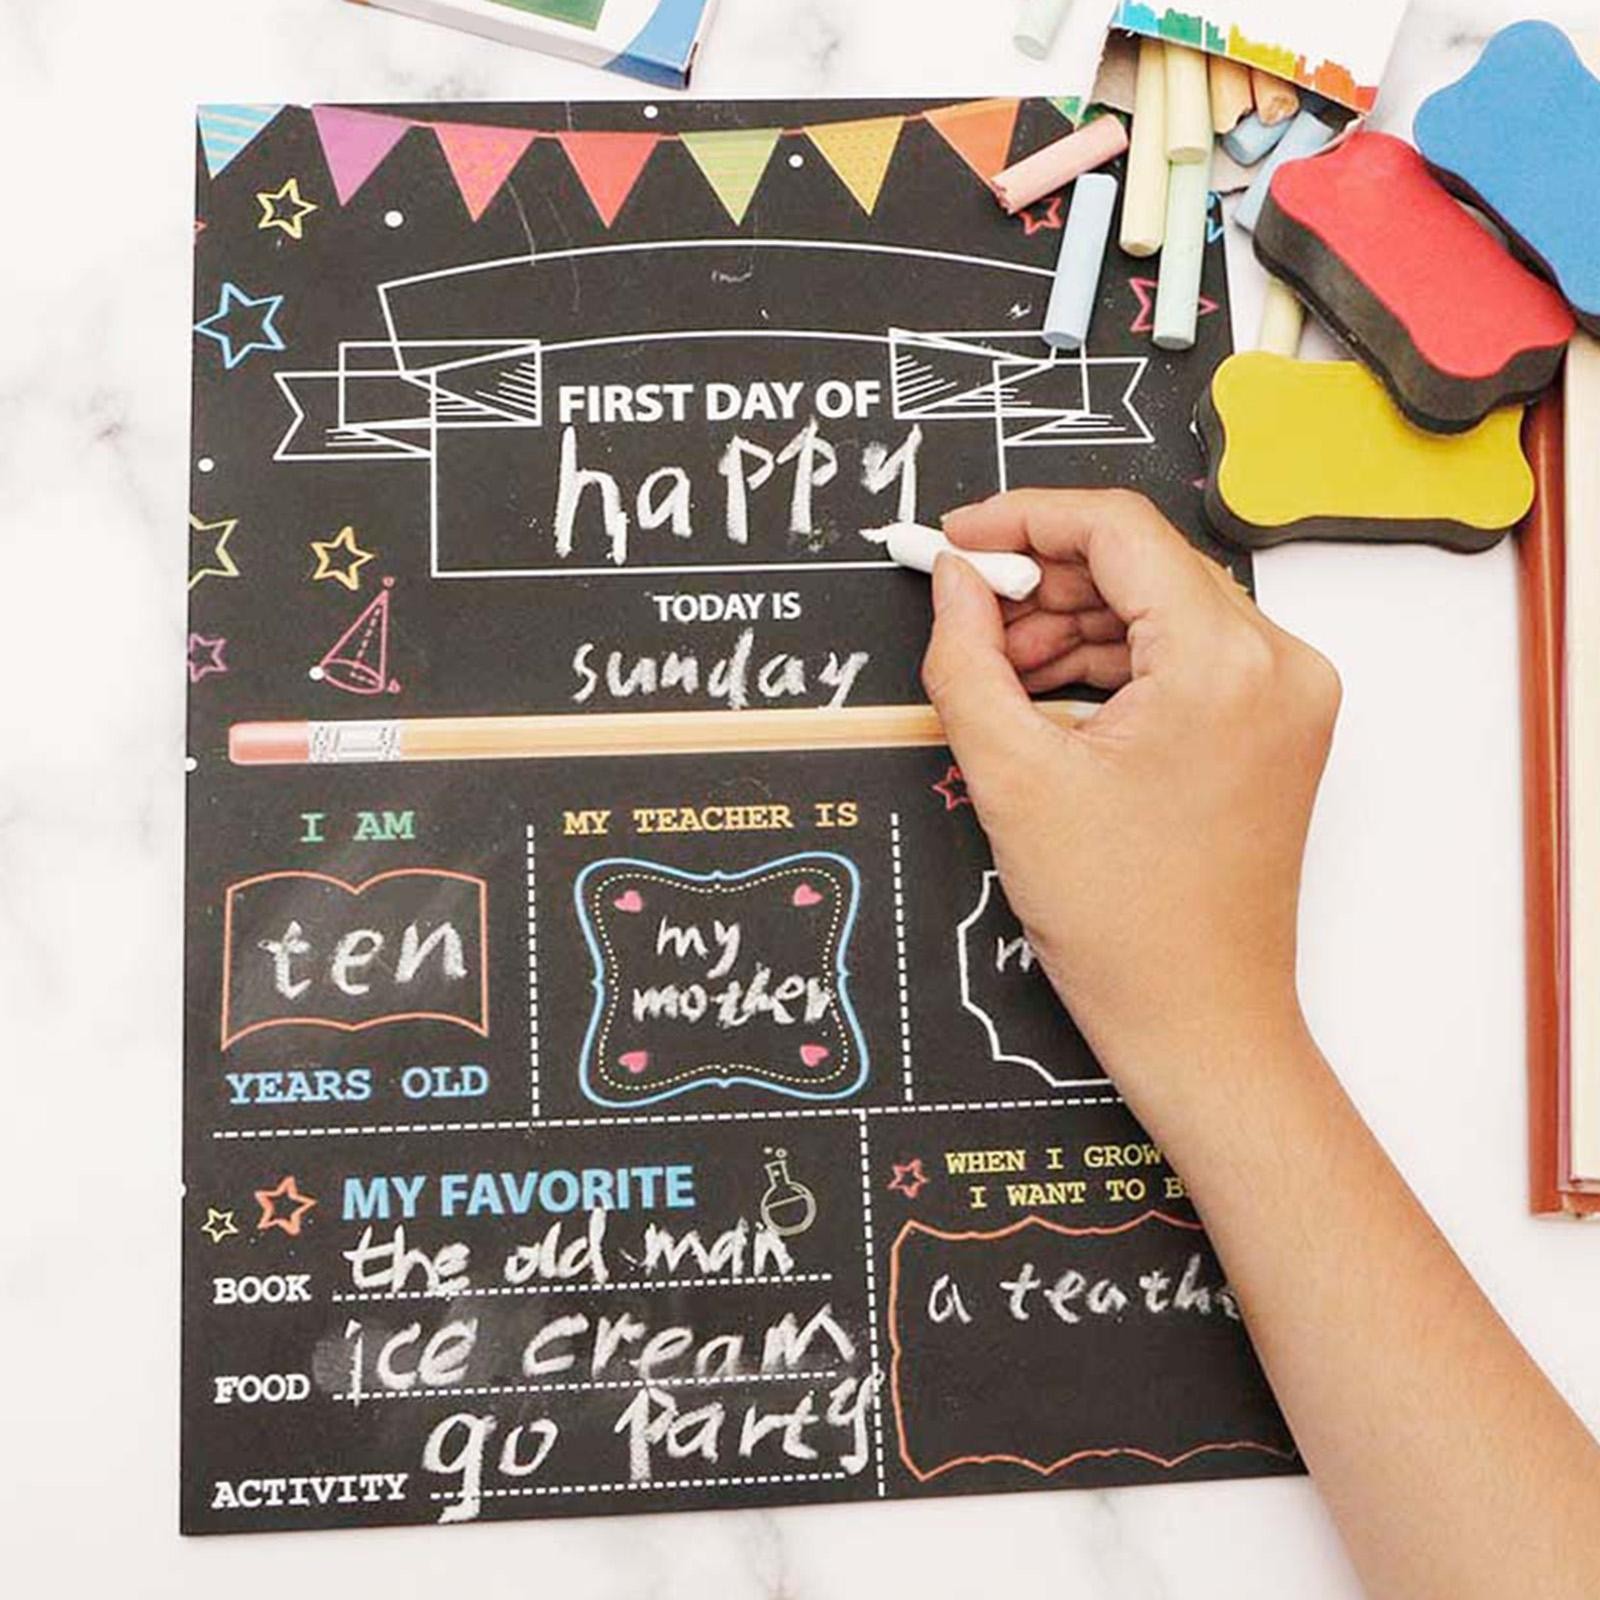 FIRST DAY OF
happy
TODAY IS
sunday
I AM
ten
YEARS OLD
MY TEACHER IS
my
mother
MY FAVORITE
BOOK the old man
FOOD ice cream
ACTIVITY go party
WHEN I GROW
I WANT TO B
a teathe